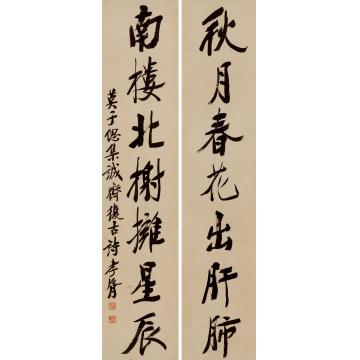 秋月春花出肝肺
南樓北榭擁星辰
莫子偲集誠齋復古詩孝胥